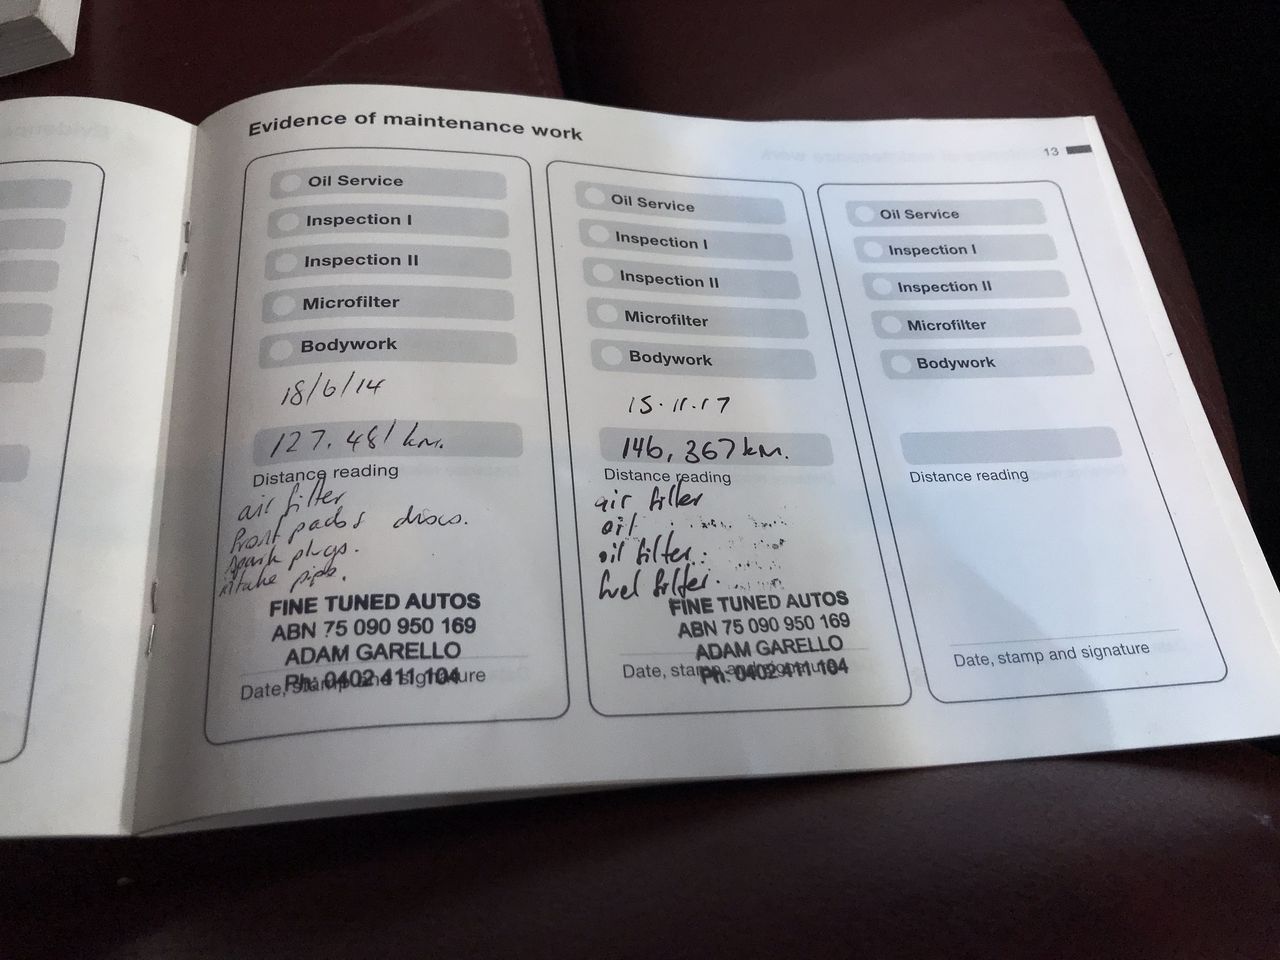 Evidence of maintenance work
13
Oil Service
Inspection I
Inspection II
Microfilter
Bodywork
18/6/14
127.481 km.
Distance reading
air filter
front pads & discs.
spark plugs.
intake pipe.
FINE TUNED AUTOS
ABN 75 090 950 169
ADAM GARELLO
Ph: 0402 411 104
Date, stamp and signature
Oil Service
Inspection I
Inspection II
Microfilter
Bodywork
15.11.17
146,367 km.
Distance reading
air filter
oil
oil filter.
fuel filter.
FINE TUNED AUTOS
ABN 75 090 950 169
ADAM GARELLO
Ph: 0402 411 104
Date, stamp and signature
Oil Service
Inspection I
Inspection II
Microfilter
Bodywork
Distance reading
Date, stamp and signature